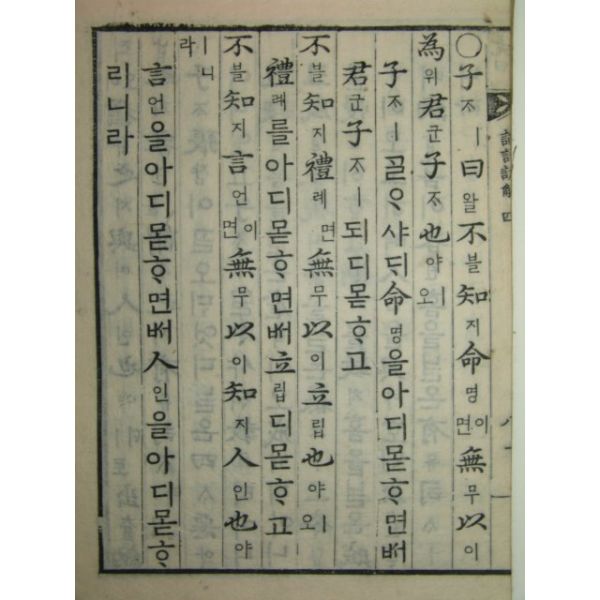 論語諺解 四
○子ᄌㅣ曰왈不블知지命명이면無무以이
為위君군子ᄌ也야ㅣ오
子ᄌㅣᄀᆞᆯᄋᆞ샤ᄃᆡ命명을아디몯ᄒᆞ면ᄡᅥ
君군子ᄌㅣ되디몯ᄒᆞ고
不블知지禮례면無무以이立립也야ㅣ오
禮례를아디몯ᄒᆞ면ᄡᅥ立립디몯ᄒᆞ고
不블知지言언이면無무以이知지人인也야
ㅣ니라
言언을아디몯ᄒᆞ면ᄡᅥ人인을아디몯ᄒᆞ
리니라